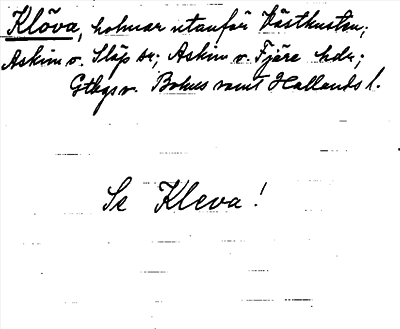 Klöva, holmar utanför Västkusten;
Askim o. Släp sr; Askim o. Fjäre hdr;
Gtbgs o. Bohus samt Hallands l.
Se Kleva!